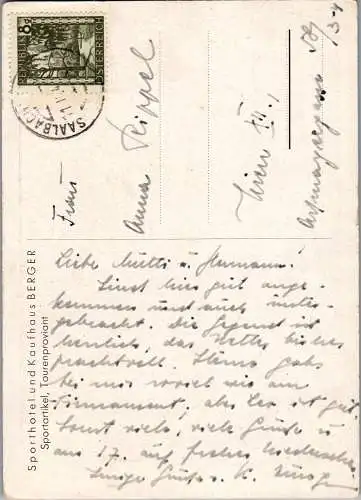 REPUBLIK ÖSTERREICH
8g
SAALBACH
Frau
Anna Rippel
Wien XII.,
Sporthotel und Kaufhaus BERGER
Sportartikel, Tourenproviant
Liebe Mutti u. Hermann!
Sind hier gut ange-
kommen und auch unter-
gebracht. Die Gegend ist
herrlich, das Wetter bisher
prachtvoll. Sterne gabs
bei mir soviel wie am
Firmament, aber es ist gut.
Sonst viele, viele Grüße u.
am 17. auf frohes Wiedersehen
Innige Grüße